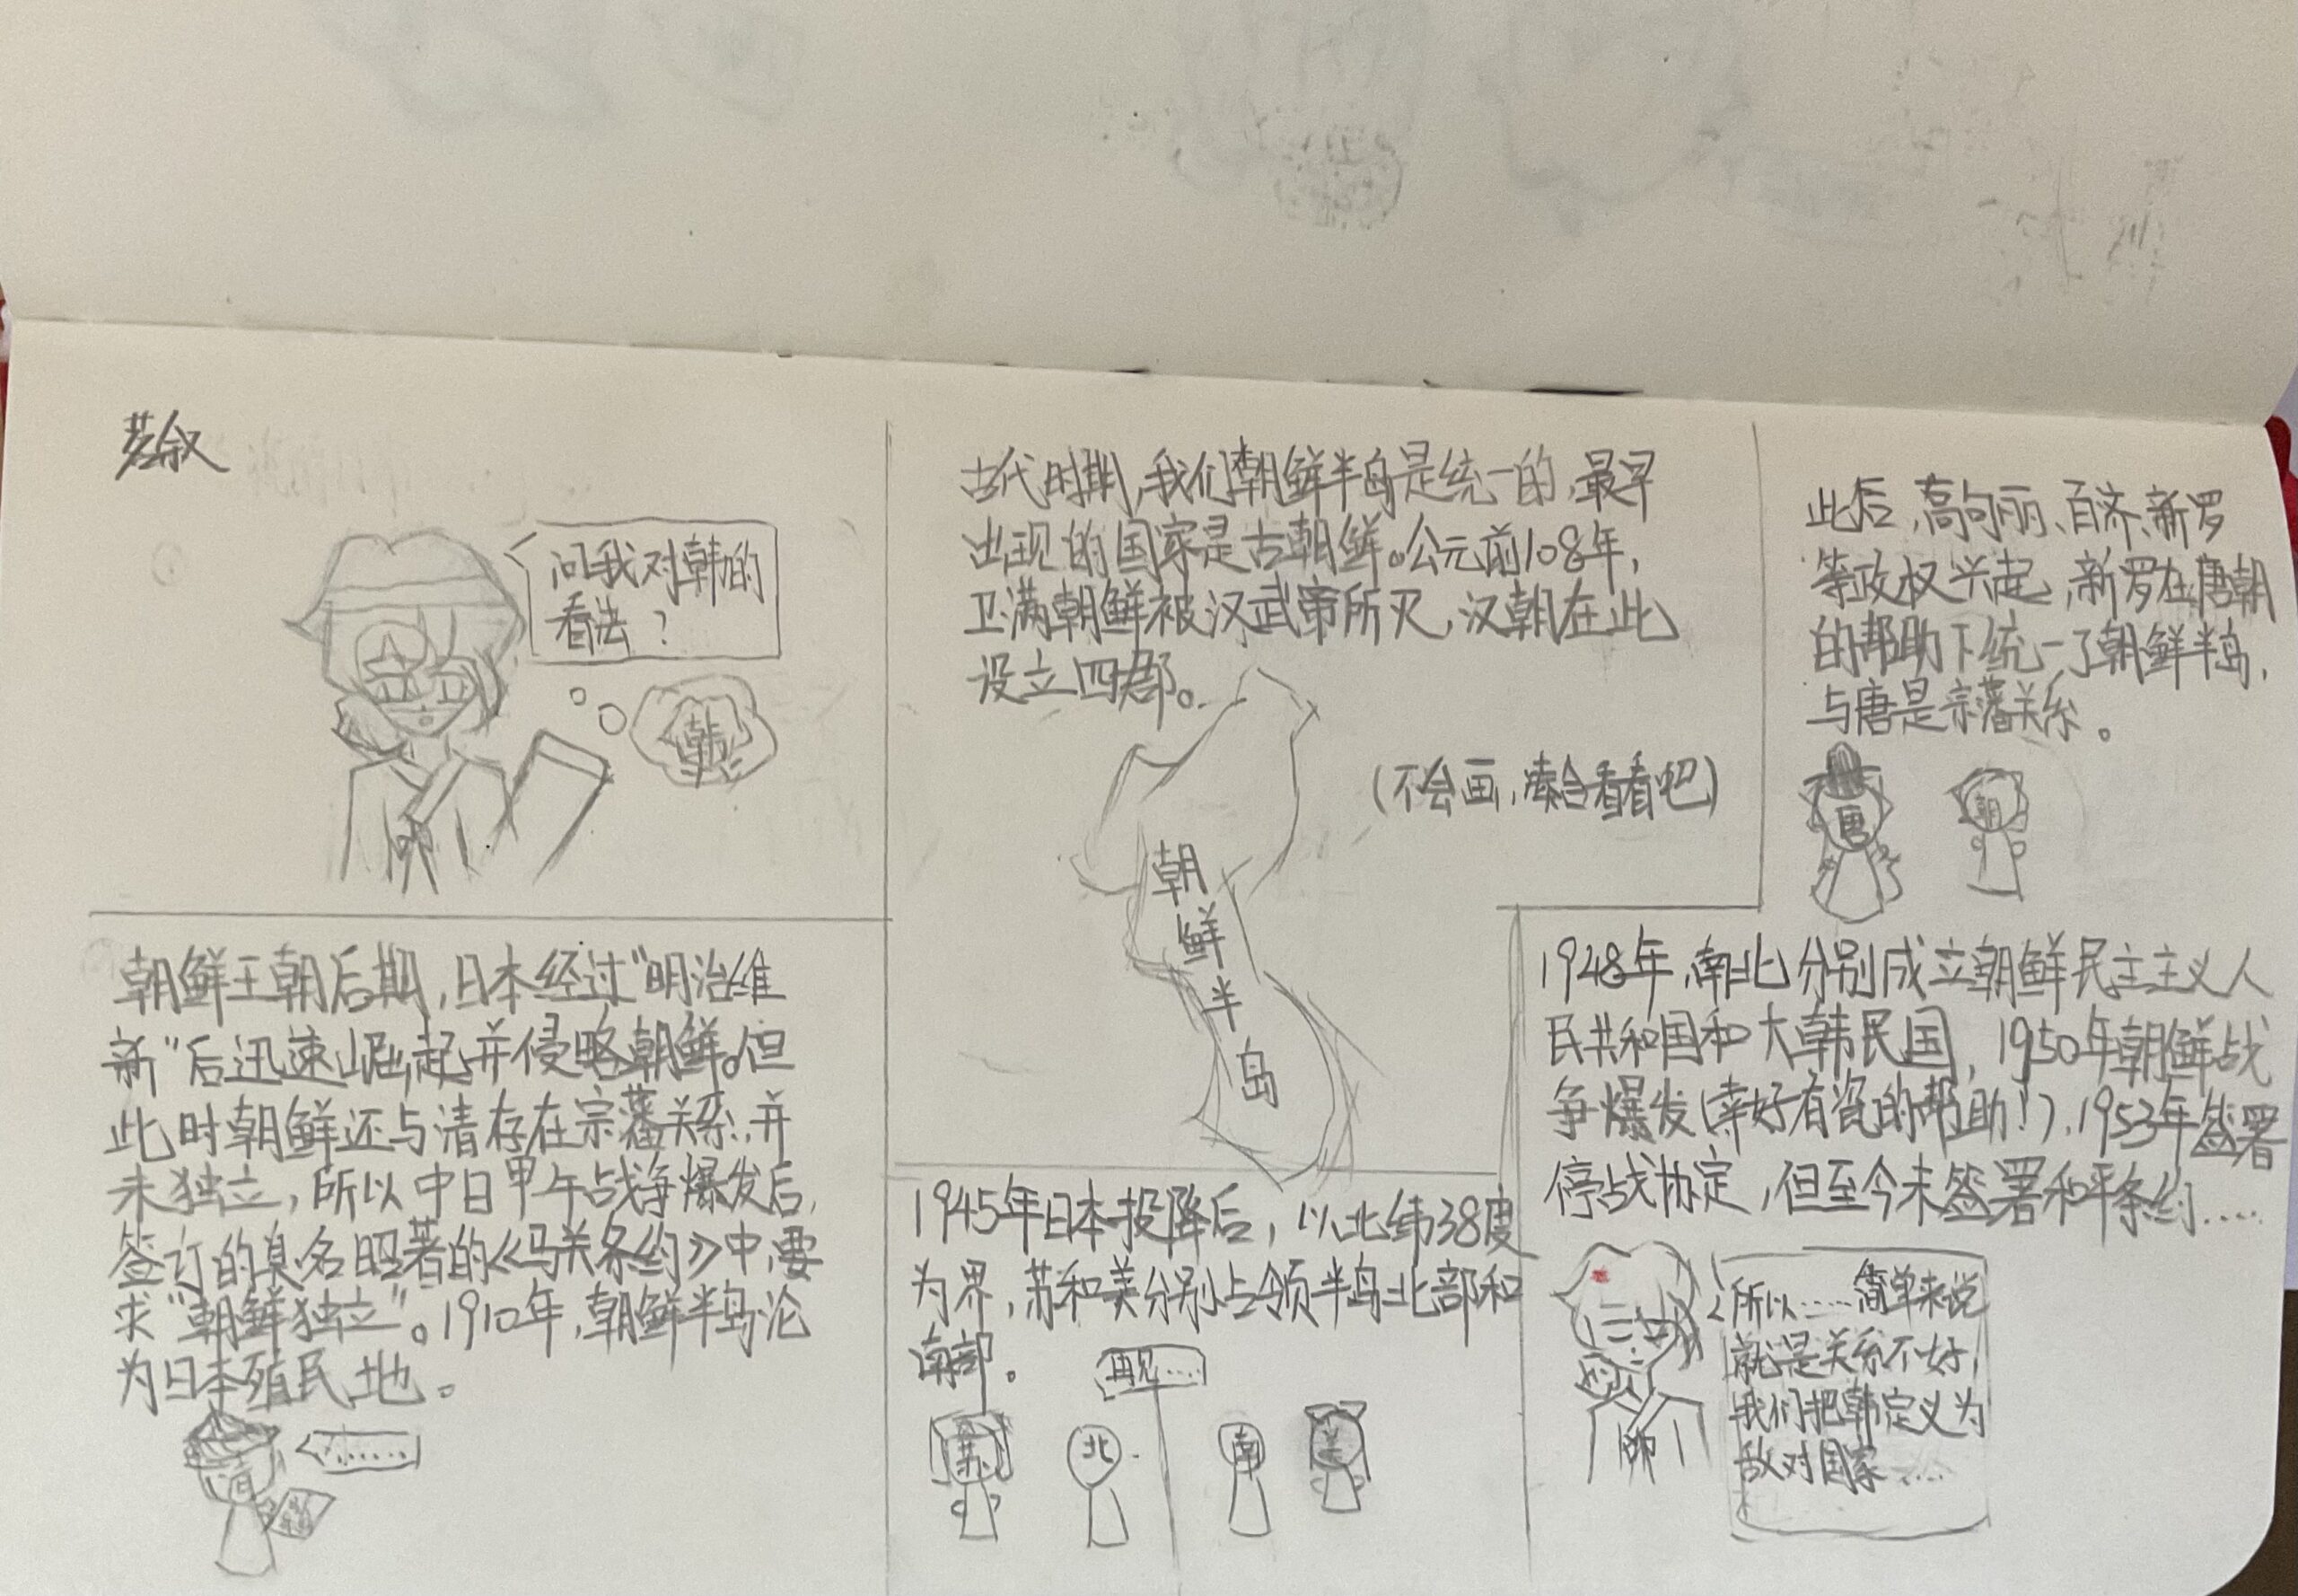 问我对韩的
看法？
韩
古代时期，我们朝鲜半岛是统一的，最早
出现的国家是古朝鲜。公元前108年，
卫满朝鲜被汉武帝所灭，汉朝在此
设立四郡。
（不会画，凑合看看吧）
朝鲜半岛
此后，高句丽、百济、新罗
等政权兴起，新罗在唐朝
的帮助下统一了朝鲜半岛，
与唐是宗藩关系。
唐
朝
朝鲜王朝后期，日本经过“明治维
新”后迅速崛起并侵略朝鲜。但
此时朝鲜还与清存在宗藩关系，并
未独立，所以中日甲午战争爆发后，
签订的臭名昭著的《马关条约》中，要
求“朝鲜独立”。1910年，朝鲜半岛沦
为日本殖民地。
……
1945年日本投降后，以北纬38度
为界，苏和美分别占领半岛北部和
南部。
再见……
苏
北
南
美
1948年，南北分别成立朝鲜民主主义人
民共和国和大韩民国，1950年朝鲜战
争爆发（幸好有瓷的帮助！），1953年签署
停战协定，但至今未签署和平条约……
所以……简单来说
就是关系不好，
我们把韩定义为
敌对国家……